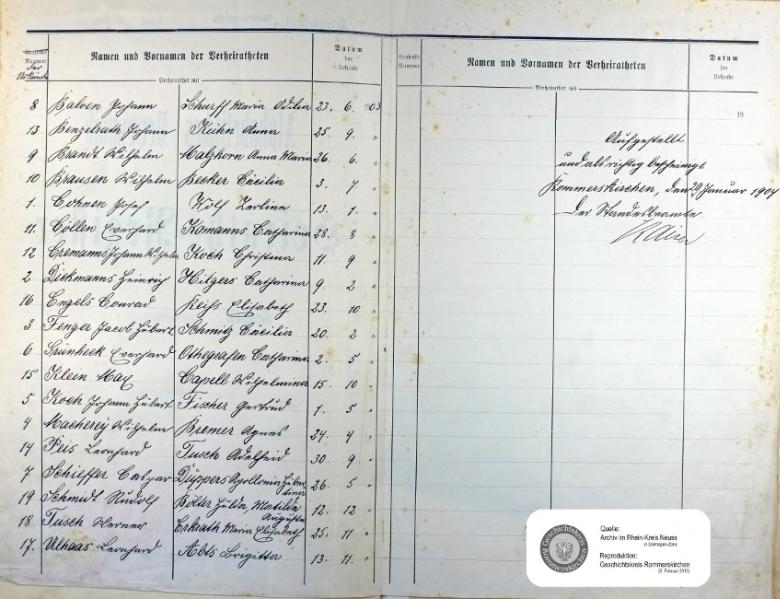 Nummer der Urkunde
Namen und Vornamen der Verheiratheten
Datum der Urkunde
Verheirathet mit
8 Balven Johann Schurff Maria Odilia 23. 6. 1903
13 Benzelrath Johann Kühn Anna 25 9. "
9 Brandt Wilhelm Malzkorn Anna Maria 26. 6. "
10 Brausen Wilhelm Becker Cäcilia 3. 7. "
1. Cohnen Josef Wolf Zerline 13. 1. "
11. Cöllen Everhard Komanns Catharina 28. 8 "
12 Cremanns Johann Wilhelm Koch Christina 11. 9 "
2 Dickmanns Heinrich Hilgers Catharina 9. 2 "
16 Engels Conrad Reihs Elisabeth 23. 10 "
3 Fenger Jacob Hubert Schmitz Cäcilia 20. 2 "
6 Grünheck Everhard Othegrafen Catharina 2. 5 "
15 Klein Max Capell Wilhelmina 15. 10 "
5 Koch Johann Hubert Fischer Gertrud 1. 5 "
4 Macherey Wilhelm Bremer Agnes 24. 4 "
14 Peis Leonhard Tusch Adelheid 30. 9 "
7 Schieffer Caspar Düppers Apollonia Hubertina 26. 5 "
19 Schmidt Rudolf Bolter Hulda, Matilda Augusta 12. 12 "
18 Tusch Werner Erkrath Maria Elisabeth 25. 11 "
17. Ulhaas Leonhard Abts Brigitta 13. 11 "
Laufende Nummer
Namen und Vornamen der Verheiratheten
Datum der Urkunde
Verheirathet mit
19
Aufgestellt
und als richtig bescheinigt
Rommerskirchen, den 29 Januar 1904
Der Standesbeamte
Geschichtskreis Rommerskirchen
Quelle:
Archiv im Rhein-Kreis Neuss
in Dormagen-Zons
Reproduktion:
Geschichtskreis Rommerskirchen